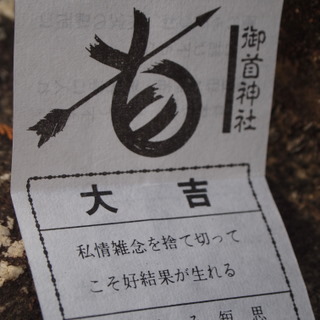 御首神社
大吉
私情雑念を捨て切って
こそ好結果が生れる